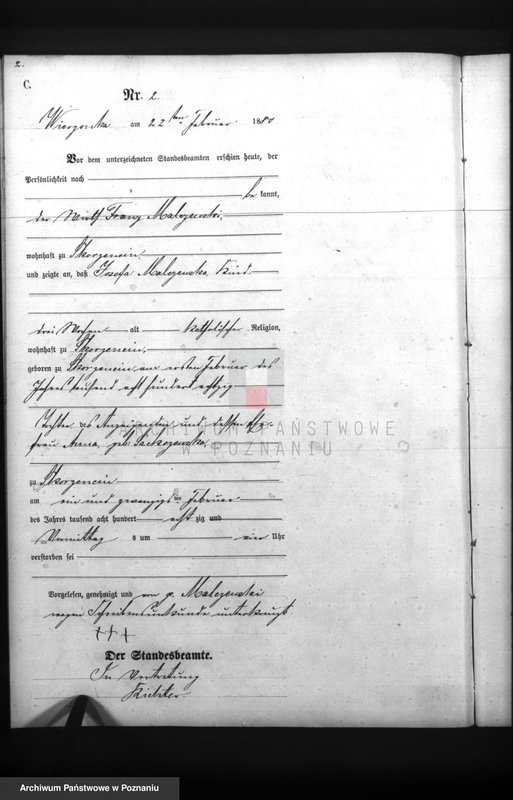 2.
C.
Nr. 2.
am 22ten Februar 1880
Vor dem unterzeichneten Standesbeamten erschien heute, der
Persönlichkeit nach
be kannt,
der Wirth Franz
wohnhaft zu Skorzencin
und zeigte an, daß Josefa Malezewska, Kind
drei Wochen alt katholischer Religion,
wohnhaft zu Skorzencin,
geboren zu Skorzencin am ersten Februar des
Jahres tausend acht hundert achtzig
Tochter des Anzeigenden und dessen Ehe-
frau Anna, geb.
zu Skorzencin
am ein und zwanzigsten Februar
des Jahres tausend acht hundert acht zig und
Vormittag s um vier Uhr
verstorben sei
Vorgelesen, genehmigt und von p.
wegen Schreibensunkunde unterkreuzt
+++
Der Standesbeamte.
In Vertretung
Richter
ARCHIWUM PAŃSTWOWE
W POZNANIU
Archiwum Państwowe w Poznaniu